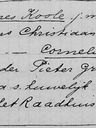 es Koole j. m
us Christiaan
Cornelis
der Pieter Gr
a s. huwelijk
het Raadhuis